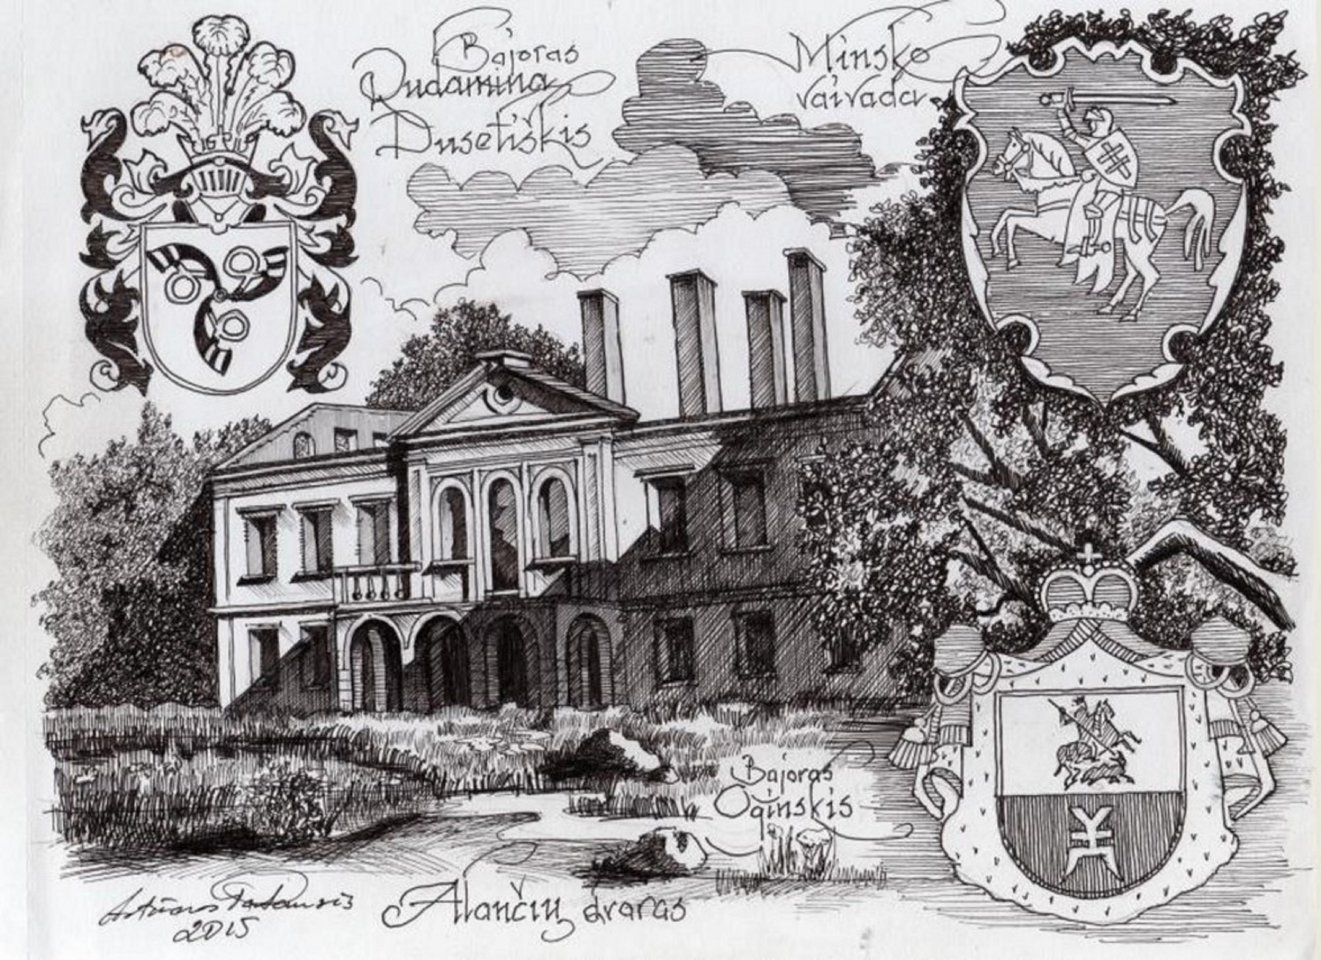 Bajoras
Rudamina
Dusetiškis
Minsko
vaivada
Bajoras
Oginskis
Alančių dvaras
2015